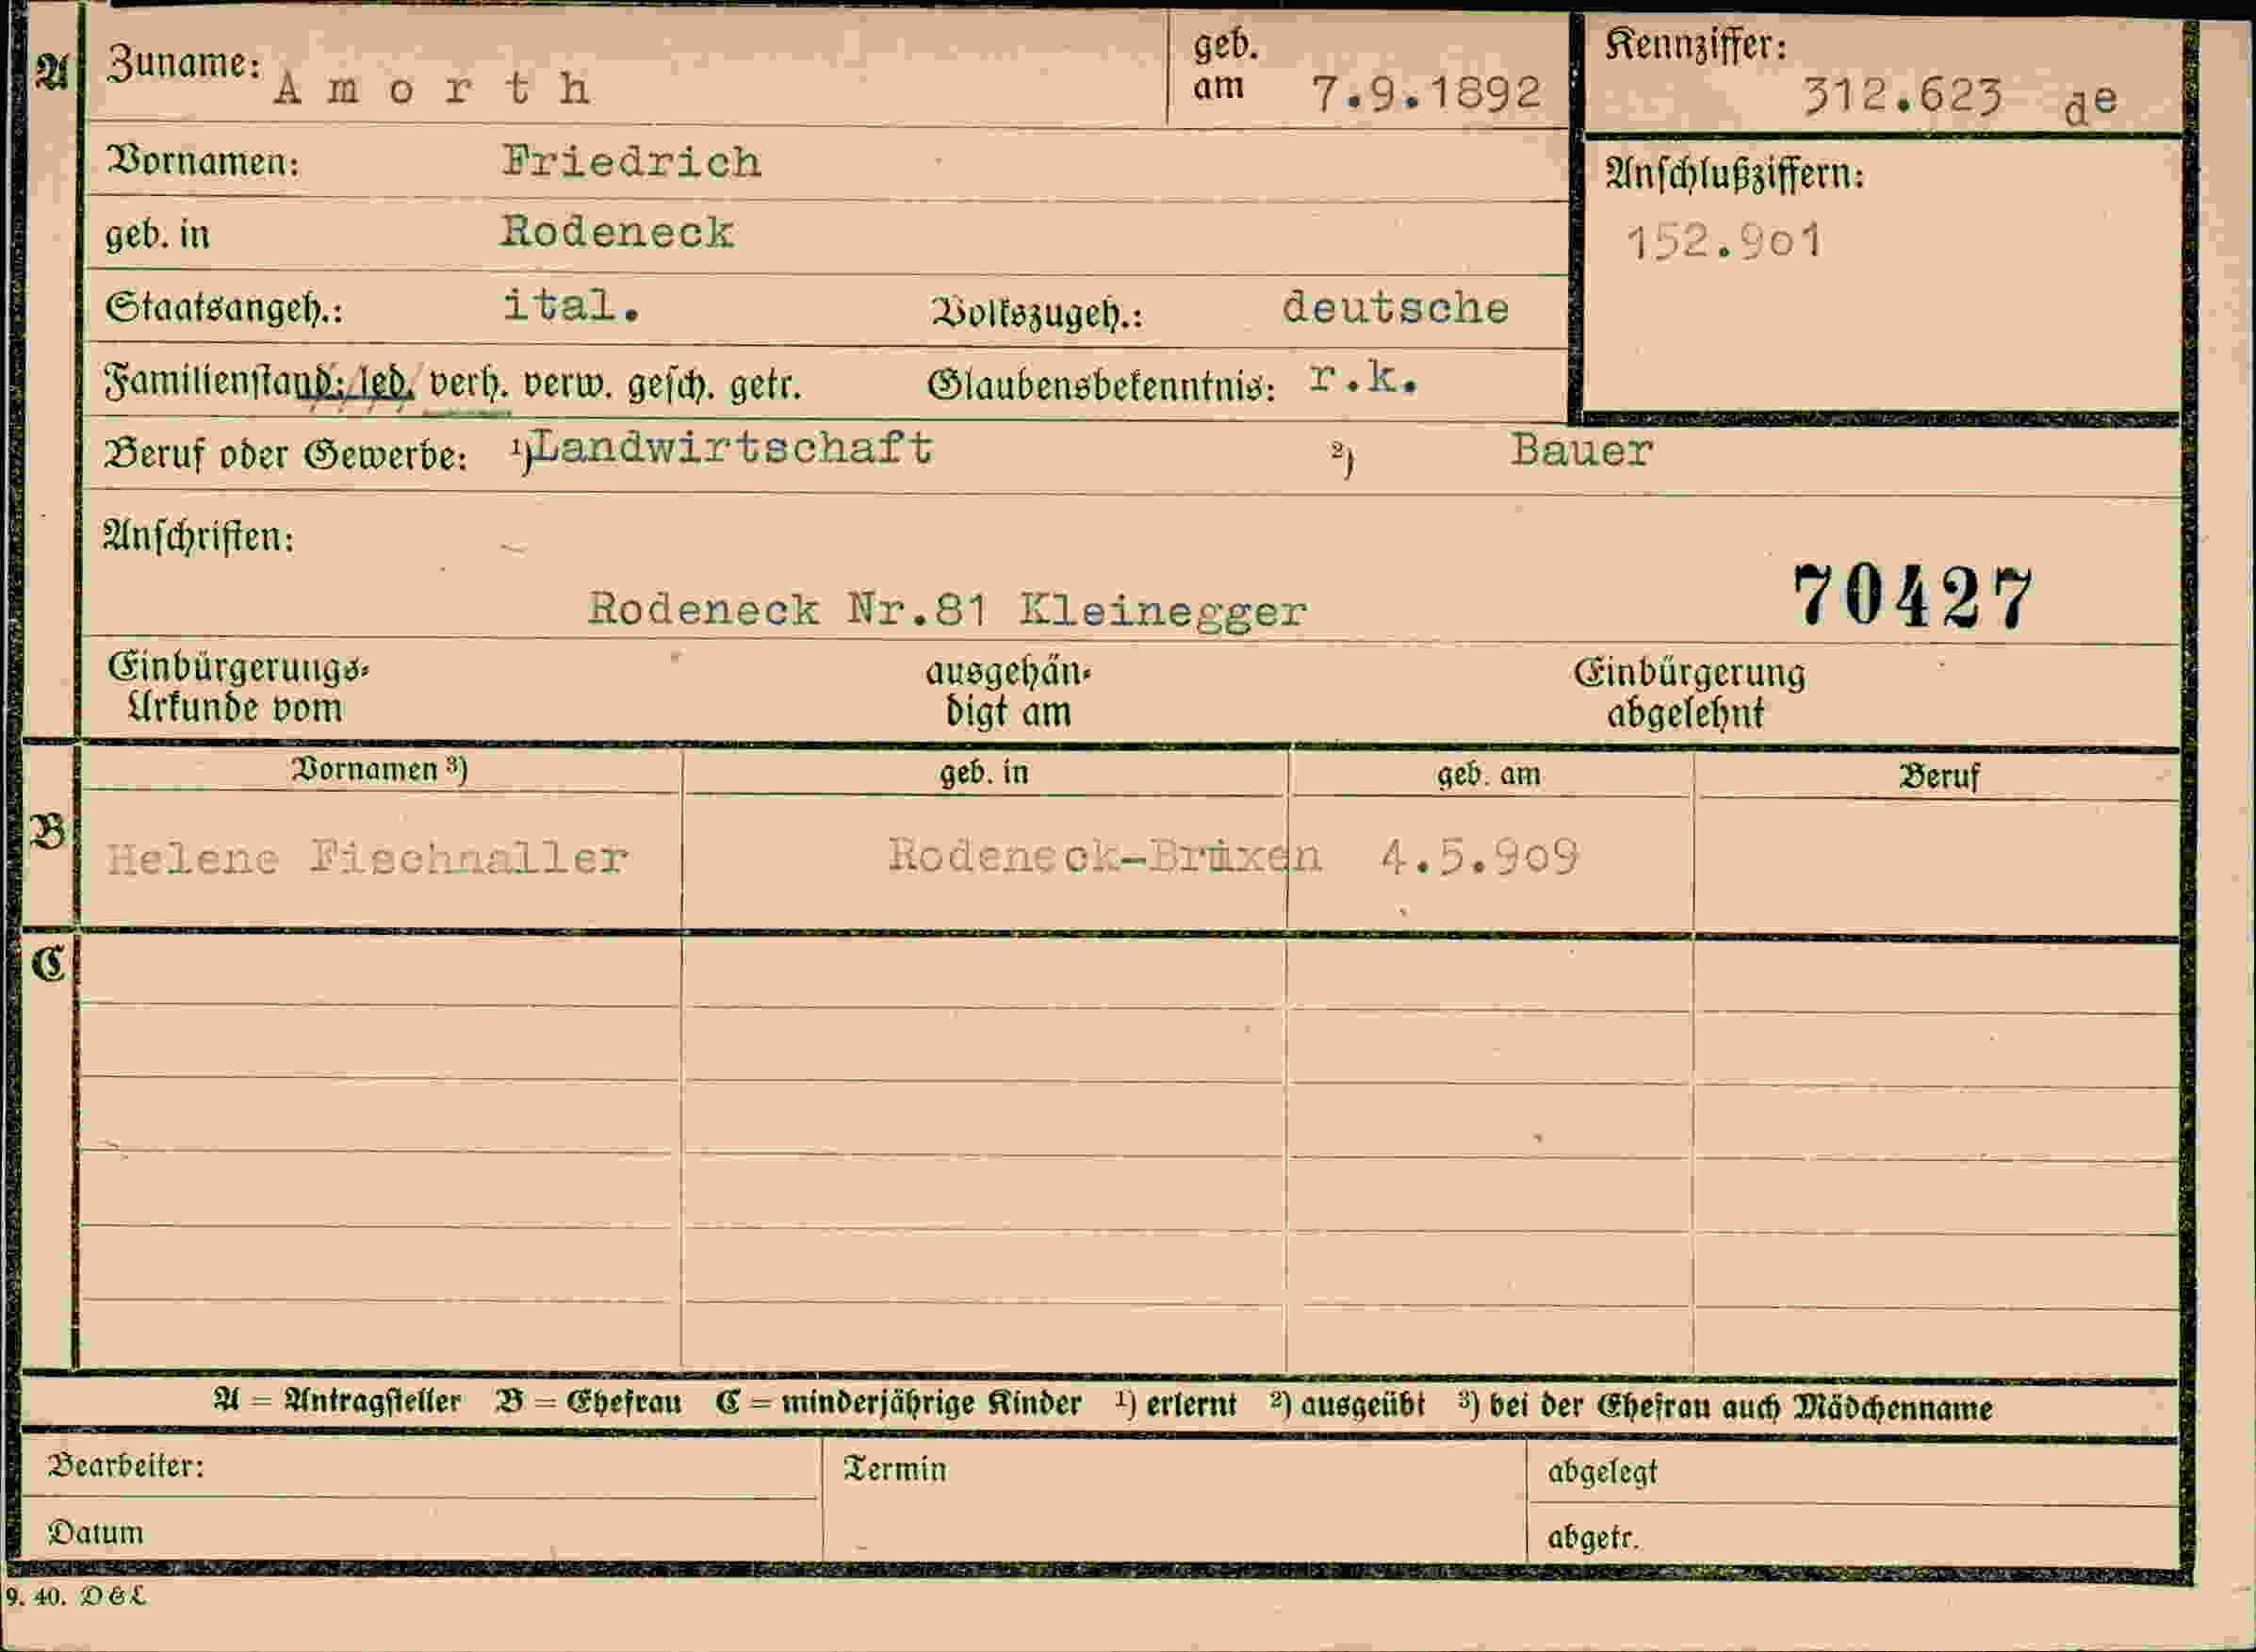 A Zuname: Amorth geb. am 7.9.1892 Kennziffer: 312.623 de
Vornamen: Friedrich Anschlußziffern:
geb. in Rodeneck 152.9o1
Staatsangeh.: ital. Volkszugeh.: deutsche
Familienstand: led. verh. verw. gesch. getr. Glaubensbekenntnis: r.k.
Beruf oder Gewerbe: ¹)Landwirtschaft ²) Bauer
Anschriften:
Rodeneck Nr.81 Kleinegger 70427
Einbürgerungs-Urkunde vom ausgehändigt am Einbürgerung abgelehnt
Vornamen ³) geb. in geb. am Beruf
B Helene Fischnaller Rodeneck-Brixen 4.5.9o9
C
A = Antragsteller B = Ehefrau C = minderjährige Kinder ¹) erlernt ²) ausgeübt ³) bei der Ehefrau auch Mädchenname
Bearbeiter: Termin abgelegt
Datum abgetr.
9. 40. D&L